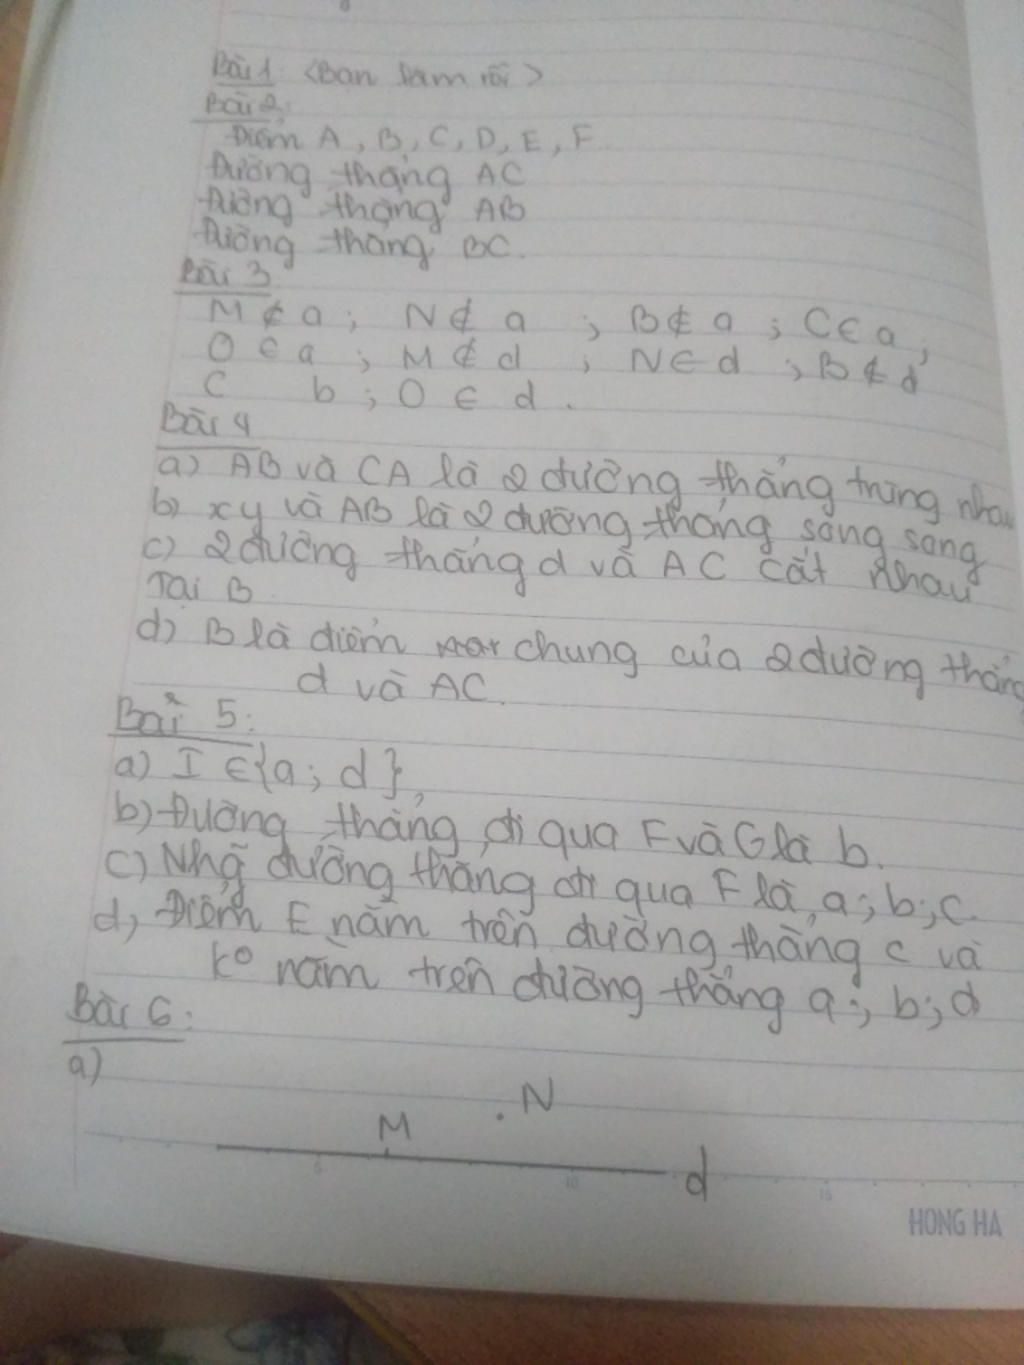 Bài 1: <Bạn làm rồi>
Bài 2:
Điểm A, B, C, D, E, F.
Đường thẳng AC
Đường thẳng AB
Đường thẳng BC.
Bài 3
M ∉ a; N ∉ a ; B ∉ a ; C ∈ a;
O ∈ a ; M ∉ d ; N ∈ d ; B ∉ d
C b ; O ∈ d.
Bài 4
a) AB và CA là 2 đường thẳng trùng nhau
b) xy và AB là 2 đường thẳng sang song
c) 2 đường thẳng d và AC cắt nhau
Tại B
d) B là điểm chung của 2 đường thẳng
d và AC.
Bài 5:
a) I ∈ {a; d},
b) Đường thẳng đi qua F và G là b.
c) Nhg~ đường thẳng đi qua F là a; b; c.
d, Điểm E nằm trên đường thẳng c và
k° nằm trên đường thẳng a; b; d
Bài 6:
a)
. N
M
d
5 10 15
HONG HA